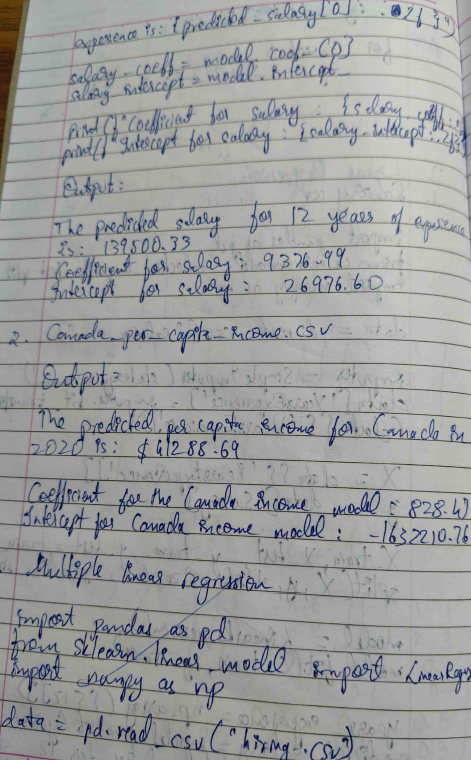 experience is: {predicted_salary[0]: .2f}")
salary_coeff = model.coef_[0]
salary_intercept = model.intercept_
print(f"Coefficient for salary : {salary_coeff:.2f}
print(f" Intercept for salary : {salary_intercept:.2f}
Output:
The predicted salary for 12 years of experience
is: 139500.33
Coefficient for salary : 9376.99
Intercept for salary : 26976.60
2. Canada_per_capita_income.csv
Output =
The predicted per capita income for Canada in
2020 is: $ 41288.69
Coefficient for the Canada income model : 828.47
Intercept for Canada income model : -1632210.76
Multiple linear regression
import pandas as pd
from sklearn.linear_model import LinearRegr
import numpy as np
data = pd.read_csv("hiring.csv")